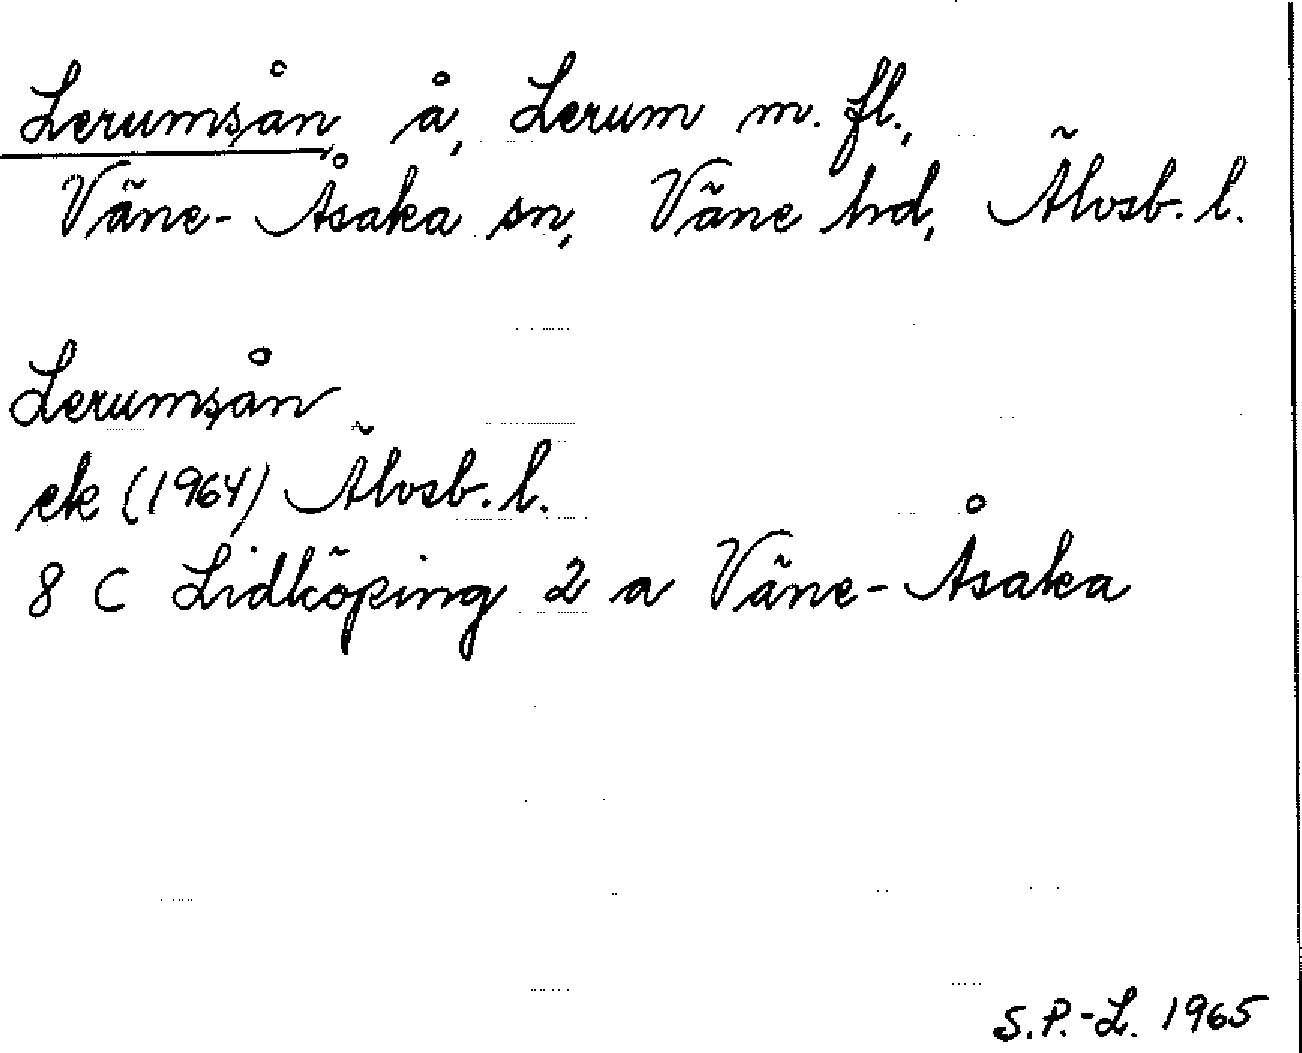 Lerumsån å, Lerum m. fl.,
Väne-Åsaka sn, Väne hd, Älvsb. l.
Lerumsån
ek (1964) Älvsb. l.
8 C Lidköping 2 a Väne-Åsaka
S.P.-L. 1965